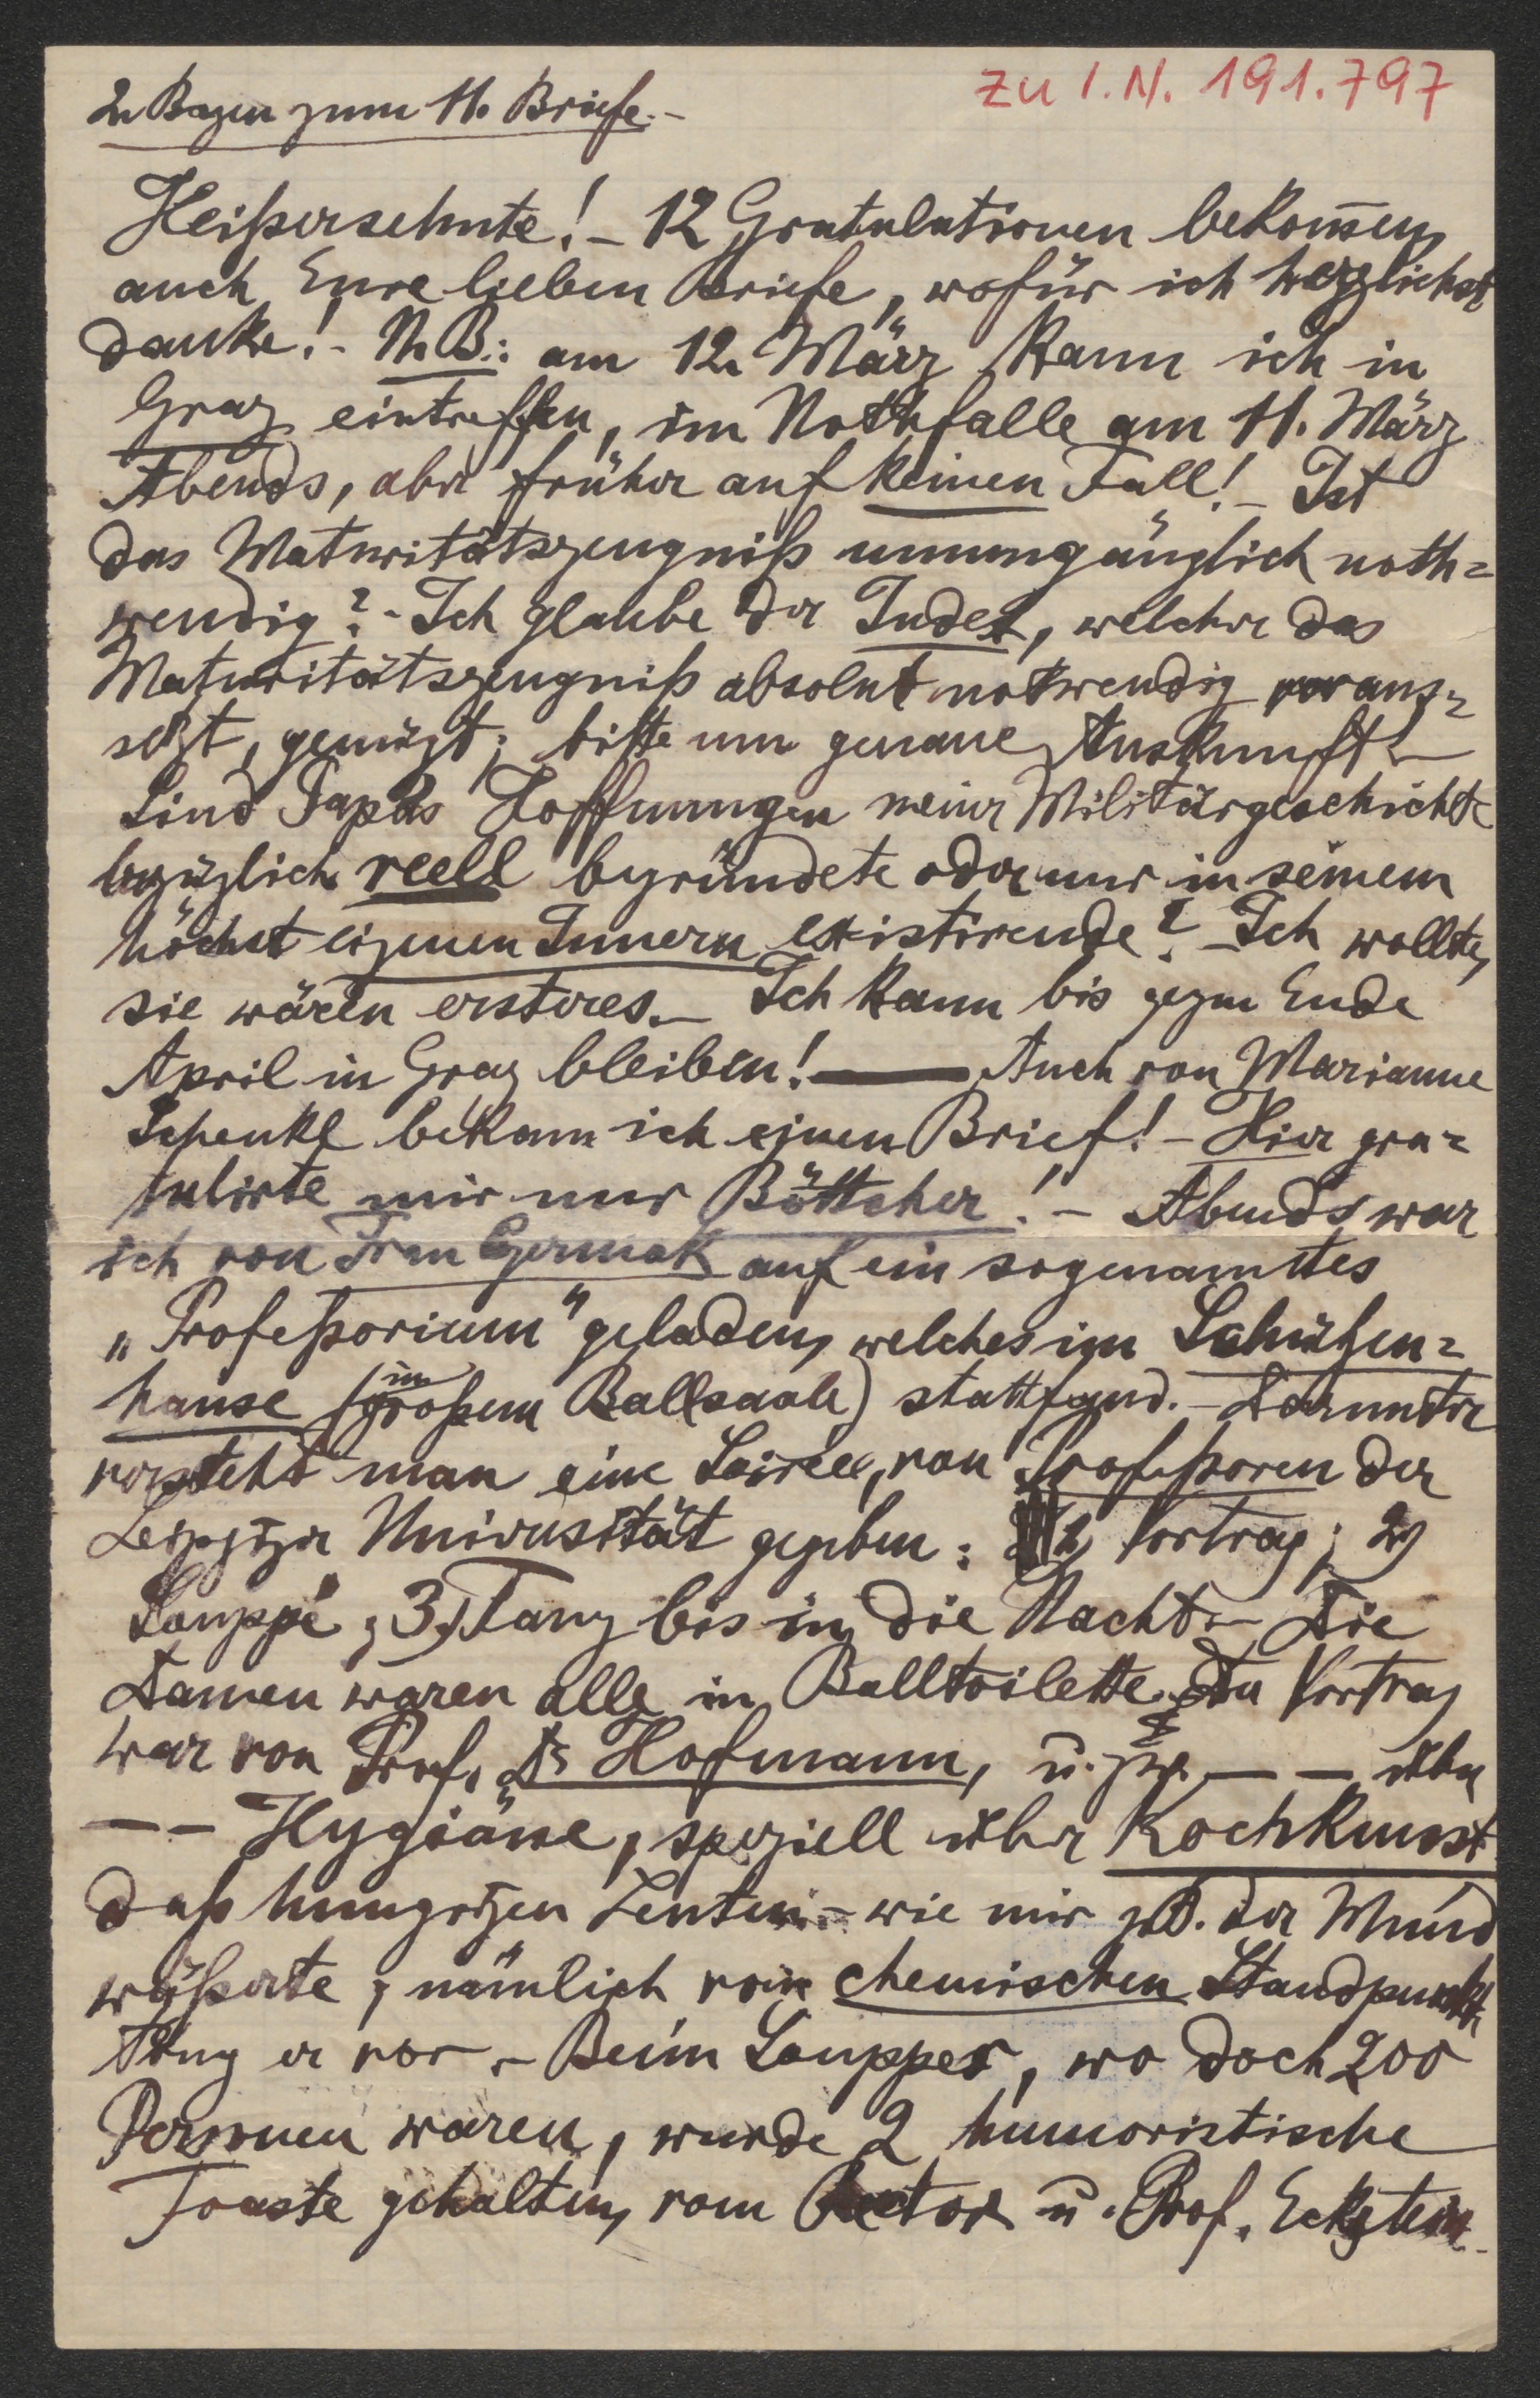 zu I.N. 191.797
2. Bogen zum 11. Briefe.-
Heißersehnte! - 12 Gratulationen bekom̄en,
auch Eure lieben Briefe, wofür ich herzlichst
danke! - N.B.: am 12. März kann ich in
Graz eintreffen, im Nothfalle am 11. März
Abends, aber früher auf keinen Fall! - Ist
das Maturitätszeugniß unumgänglich noth=
wendig? - Ich glaube der Index, welcher das
Maturitätszeugniß absolut notwendig voraus=
setzt, genügt; bitte um genaue Auskunft! -
Sind Papas Hoffnungen meiner Militärgeschichte
bezüglich reell begründete oder nur in seinem
höchst eigenen Innern existirende? - Ich wollte,
sie wären ersteres. - Ich kann bis gegen Ende
April in Graz bleiben! — Auch von Marianne
Schenkl bekam ich einen Brief! - Hier gra=
tulirte mir nur Böttcher! - Abends war
ich von Frau Czermak auf ein sogenanntes
„Profeßorium" geladen, welches im Schützen=
hause (im großem Ballsaale) stattfand. - Darunter
versteht man eine Soirée, von Profeßoren der
Leipziger Universität gegeben: 1) Vortrag; 2)
Souppé; 3) Tanz bis in die Nacht. - Die
Damen waren alle in Balltoilette. Der Vortrag
war von Prof. Dr Hofmann, u. zw. — — über
— — Hygiäne, speziell über Kochkunst
daß hungrigen Leuten - wie mir z.B. der Mund
wäßerte; nämlich vom chemischen Standpunkte
trug er vor. - Beim Soupper, wo doch 200
Personen waren, wurde 2 humoristische
Toaste gehalten, vom Rector u. Prof. Eckstein.